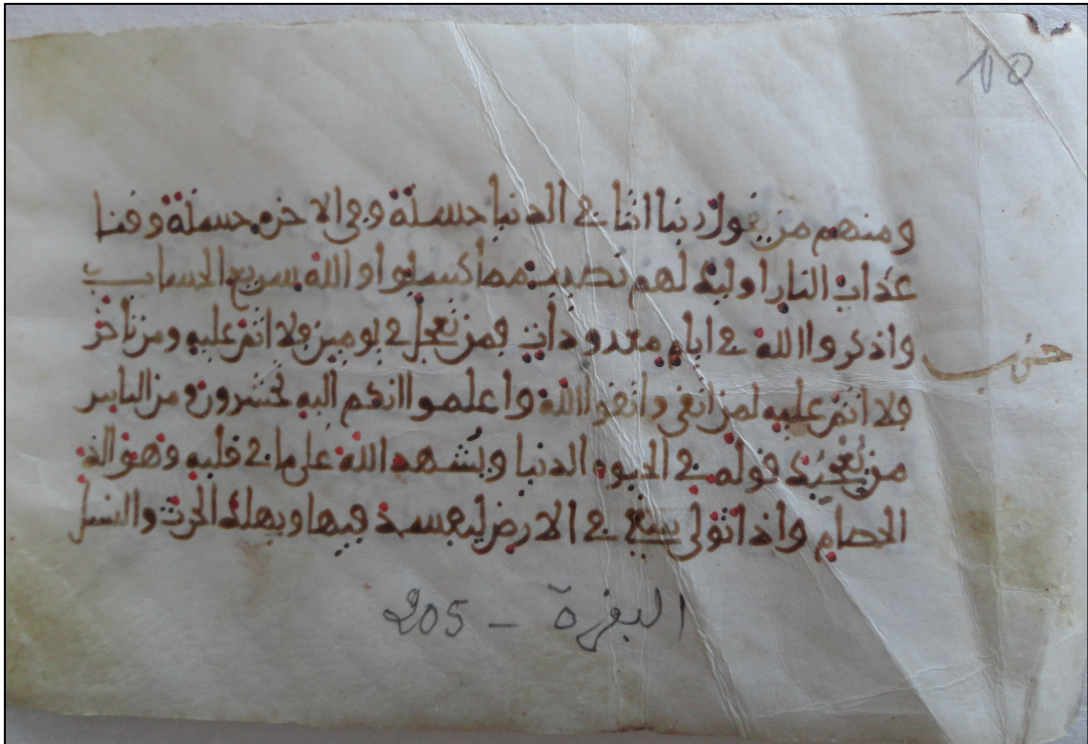 10
ومنهم من يقول ربنا اتنا في الدنيا حسنة وفي الاخرة حسنة وقنا
عذاب النار اوليك لهم نصيب مما كسبوا والله سريع الحساب
واذكروا الله في ايام معدودات فمن تعجل في يومين فلا اثم عليه ومن تاخر
حزب
فلا اثم عليه لمن اتقى واتقوا الله واعلموا انكم اليه تحشرون ومن الناس
من يعجبك قوله في الحيوة الدنيا ويشهد الله على ما في قلبه وهو الد
الخصام واذا تولى سعى في الارض ليفسد فيها ويهلك الحرث والنسل
البقرة - 205